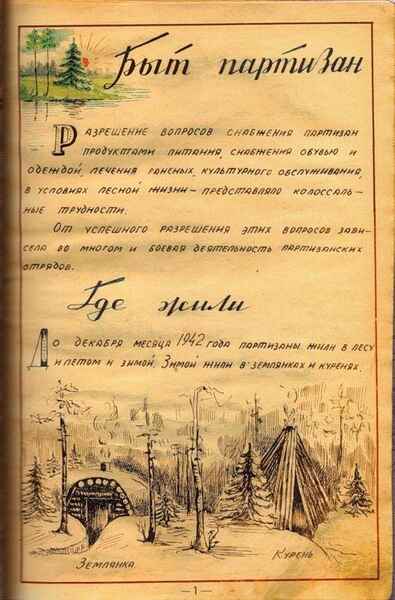 Быт партизан
Разрешение вопросов снабжения партизан
продуктами питания, снабжения обувью и
одеждой, лечения раненых, культурного обслуживания,
в условиях лесной жизни – представляло колоссаль-
ные трудности.
От успешного разрешения этих вопросов зави-
села во многом и боевая деятельность партизанских
отрядов.
Где жили
До декабря месяца 1942 года партизаны жили в лесу
и летом и зимой. Зимой жили в землянках и куренях.
Землянка
Курень
— 1 —